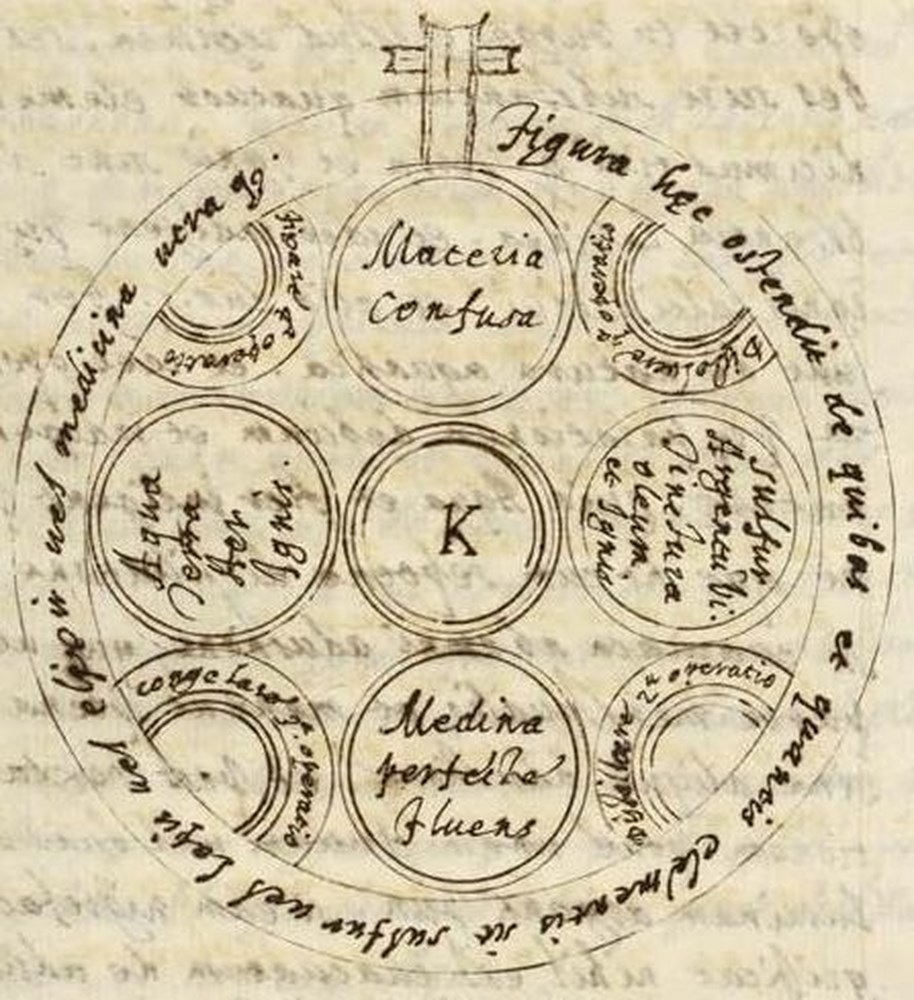 Figura hęc ostendit de quibus et quantis elementis sit sulfur vel lapis vel elixir vel medicina vera
Materia
Confusa
Dissolvere
operatio
Sulfur
Argentu Vi.
Tinctura
oleum
et Ignis
2a operatio
Medina
perfecte
fluens
congelare
operatio
Aqua
Terra
Aer
Ignis.
figare
operatio
K